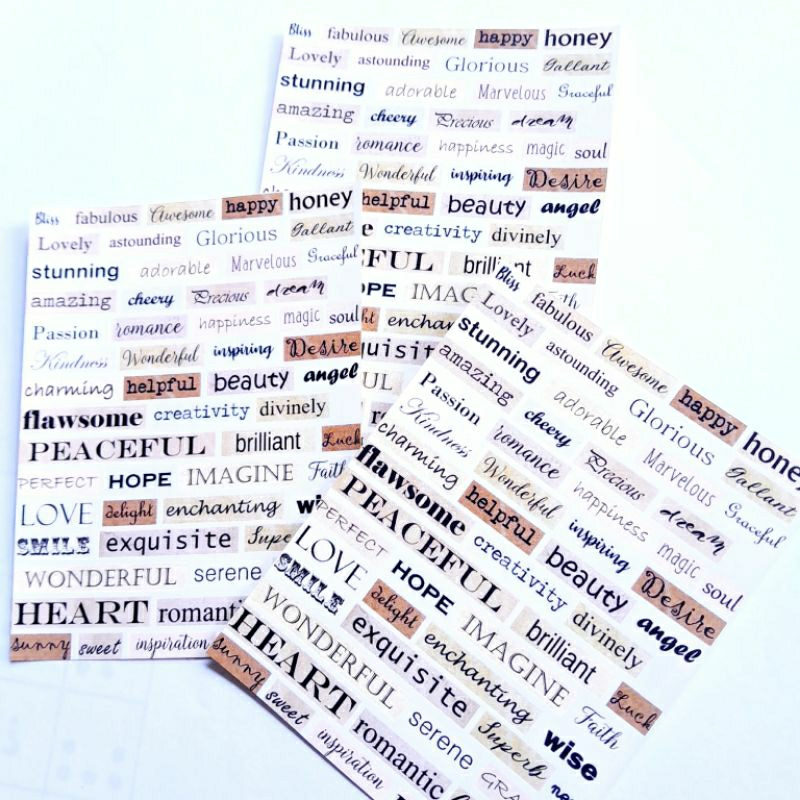 Bliss fabulous Awesome happy honey
Lovely astounding Glorious Gallant
stunning adorable Marvelous Graceful
amazing cheery Precious dream
Passion romance happiness magic soul
Kindness Wonderful inspiring Desire
helpful beauty angel
creativity divinely
brilliant Luck
IMAG
enchan
quisit
Bliss fabulous Awesome happy honey
Lovely astounding Glorious Gallant
stunning adorable Marvelous Graceful
amazing cheery Precious dream
Passion romance happiness magic soul
Kindness Wonderful inspiring Desire
charming helpful beauty angel
flawsome creativity divinely
PEACEFUL brilliant Luck
PERFECT HOPE IMAGINE Faith
LOVE delight enchanting wi
SMILE exquisite Supe
WONDERFUL serene
HEART romanti
sunny sweet inspiration
Bliss fabulous Awesome happy honey
Lovely astounding Glorious Gallant
stunning adorable Marvelous Graceful
amazing cheery Precious dream
Passion romance happiness magic soul
Kindness Wonderful inspiring Desire
charming helpful beauty angel
flawsome creativity divinely
PEACEFUL brilliant Luck
PERFECT HOPE IMAGINE Faith
LOVE delight enchanting wise
SMILE exquisite Superb
WONDERFUL serene GRA
HEART romantic
sunny sweet inspiration